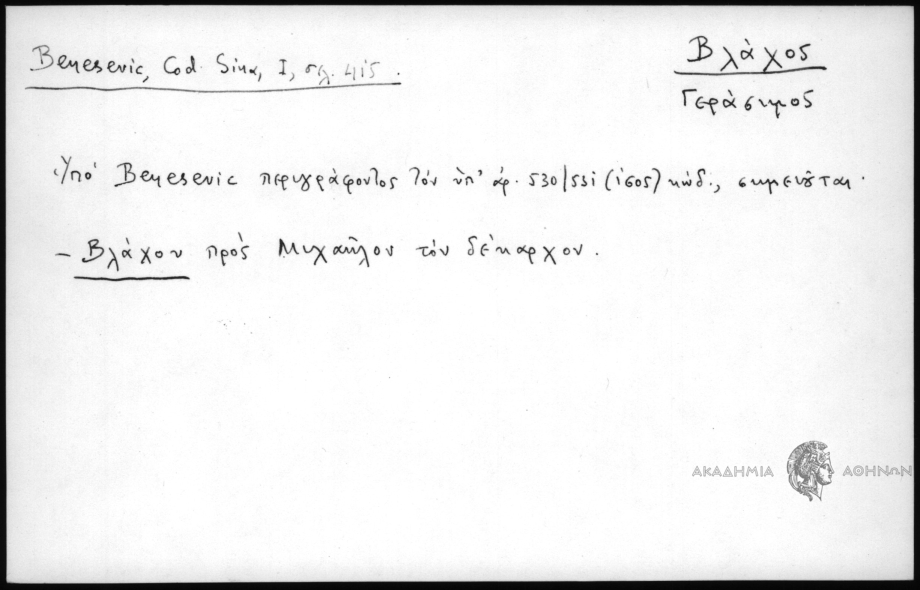 Benesevic, Cod. Sina, I, σελ. 415.
Βλάχος
Γεράσιμος
Ὑπό Benesevic περιγράφοντος τόν ὑπ' ἀρ. 530/531 (ἰσος) κώδ., σημειοῦται.
– Βλάχου πρός Μιχαῆλον τόν δέκαρχον.
ΑΚΑΔΗΜΙΑ ΑΘΗΝΩΝ